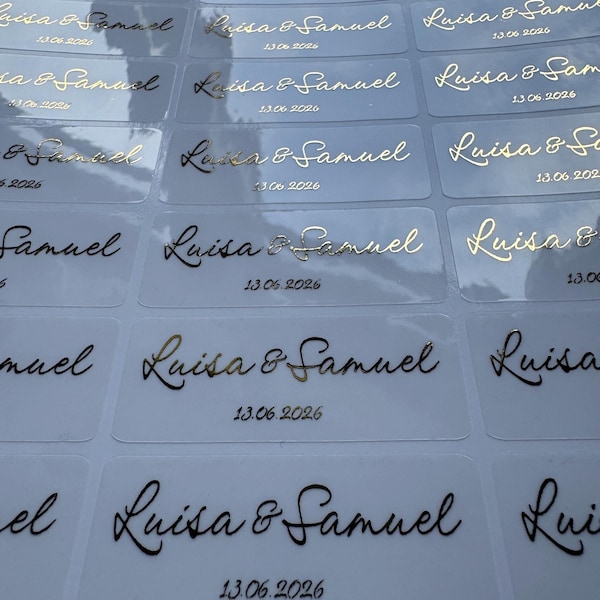 uisa & Samuel Luisa & Samuel Luisa & Samue
13.06.2026 13.06.2026 13.06.2026
uisa & Samuel Luisa & Samuel Luisa & Sam
13.06.2026 13.06.2026 13.06.2026
& Samuel Luisa & Samuel Luisa & Sa
06.2026 13.06.2026 13.06.202
Samuel Luisa & Samuel Luisa &
6 13.06.2026 13.0
muel Luisa & Samuel Luisa
13.06.2026
el Luisa & Samuel Lui
13.06.2026